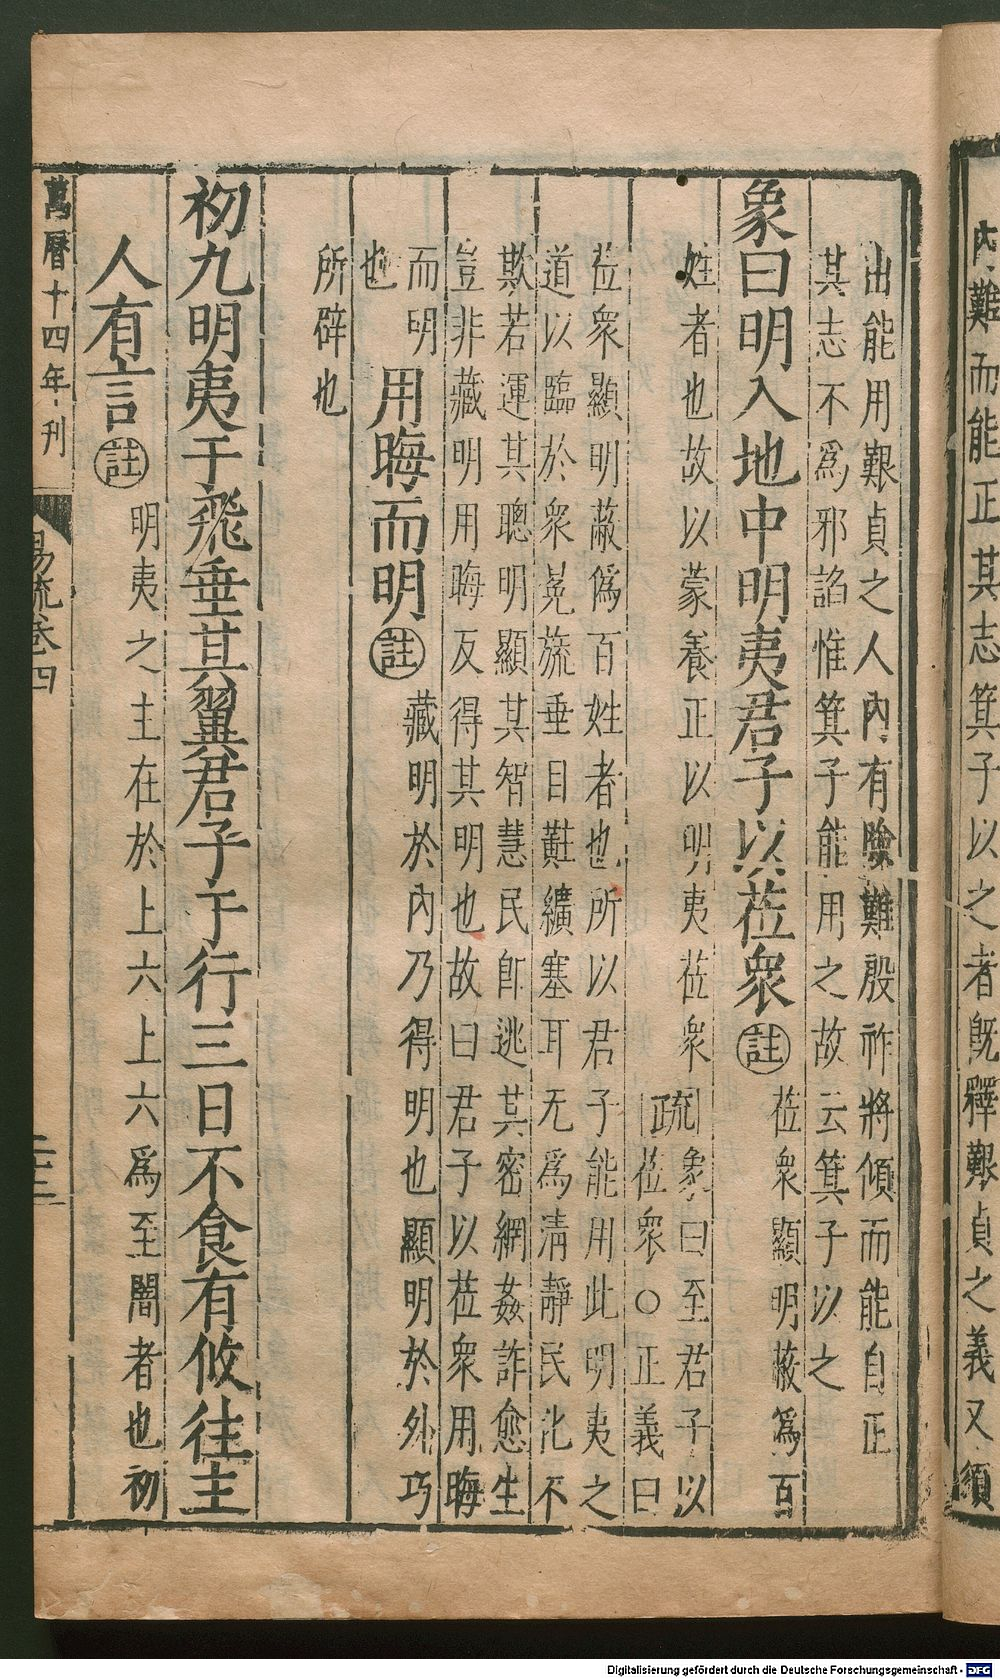 內難而能正其志箕子以之者既釋艱貞之義又須
出能用艱貞之人內有險難殷祚將傾而能自正
其志不爲邪諂惟箕子能用之故云箕子以之
象曰明入地中明夷君子以莅衆 註 莅衆顯明蔽爲百
姓者也故以蒙養正以明夷莅衆 疏 象曰至君子以
莅衆○正義曰
莅衆顯明蔽僞百姓者也所以君子能用此明夷之
道以臨於衆冕旒垂目黈纊塞耳无爲淸靜民化不
欺若運其聰明顯其智慧民卽逃其密網姦詐愈生
豈非藏明用晦反得其明也故曰君子以莅衆用晦
而明
也
用晦而明 註 藏明於內乃得明也顯明於外巧
所辟也
初九明夷于飛垂其翼君子于行三日不食有攸往主
人有言 註 明夷之主在於上六上六爲至闇者也初
萬曆十四年刊
易疏卷四
Digitalisierung gefördert durch die Deutsche Forschungsgemeinschaft - DFG